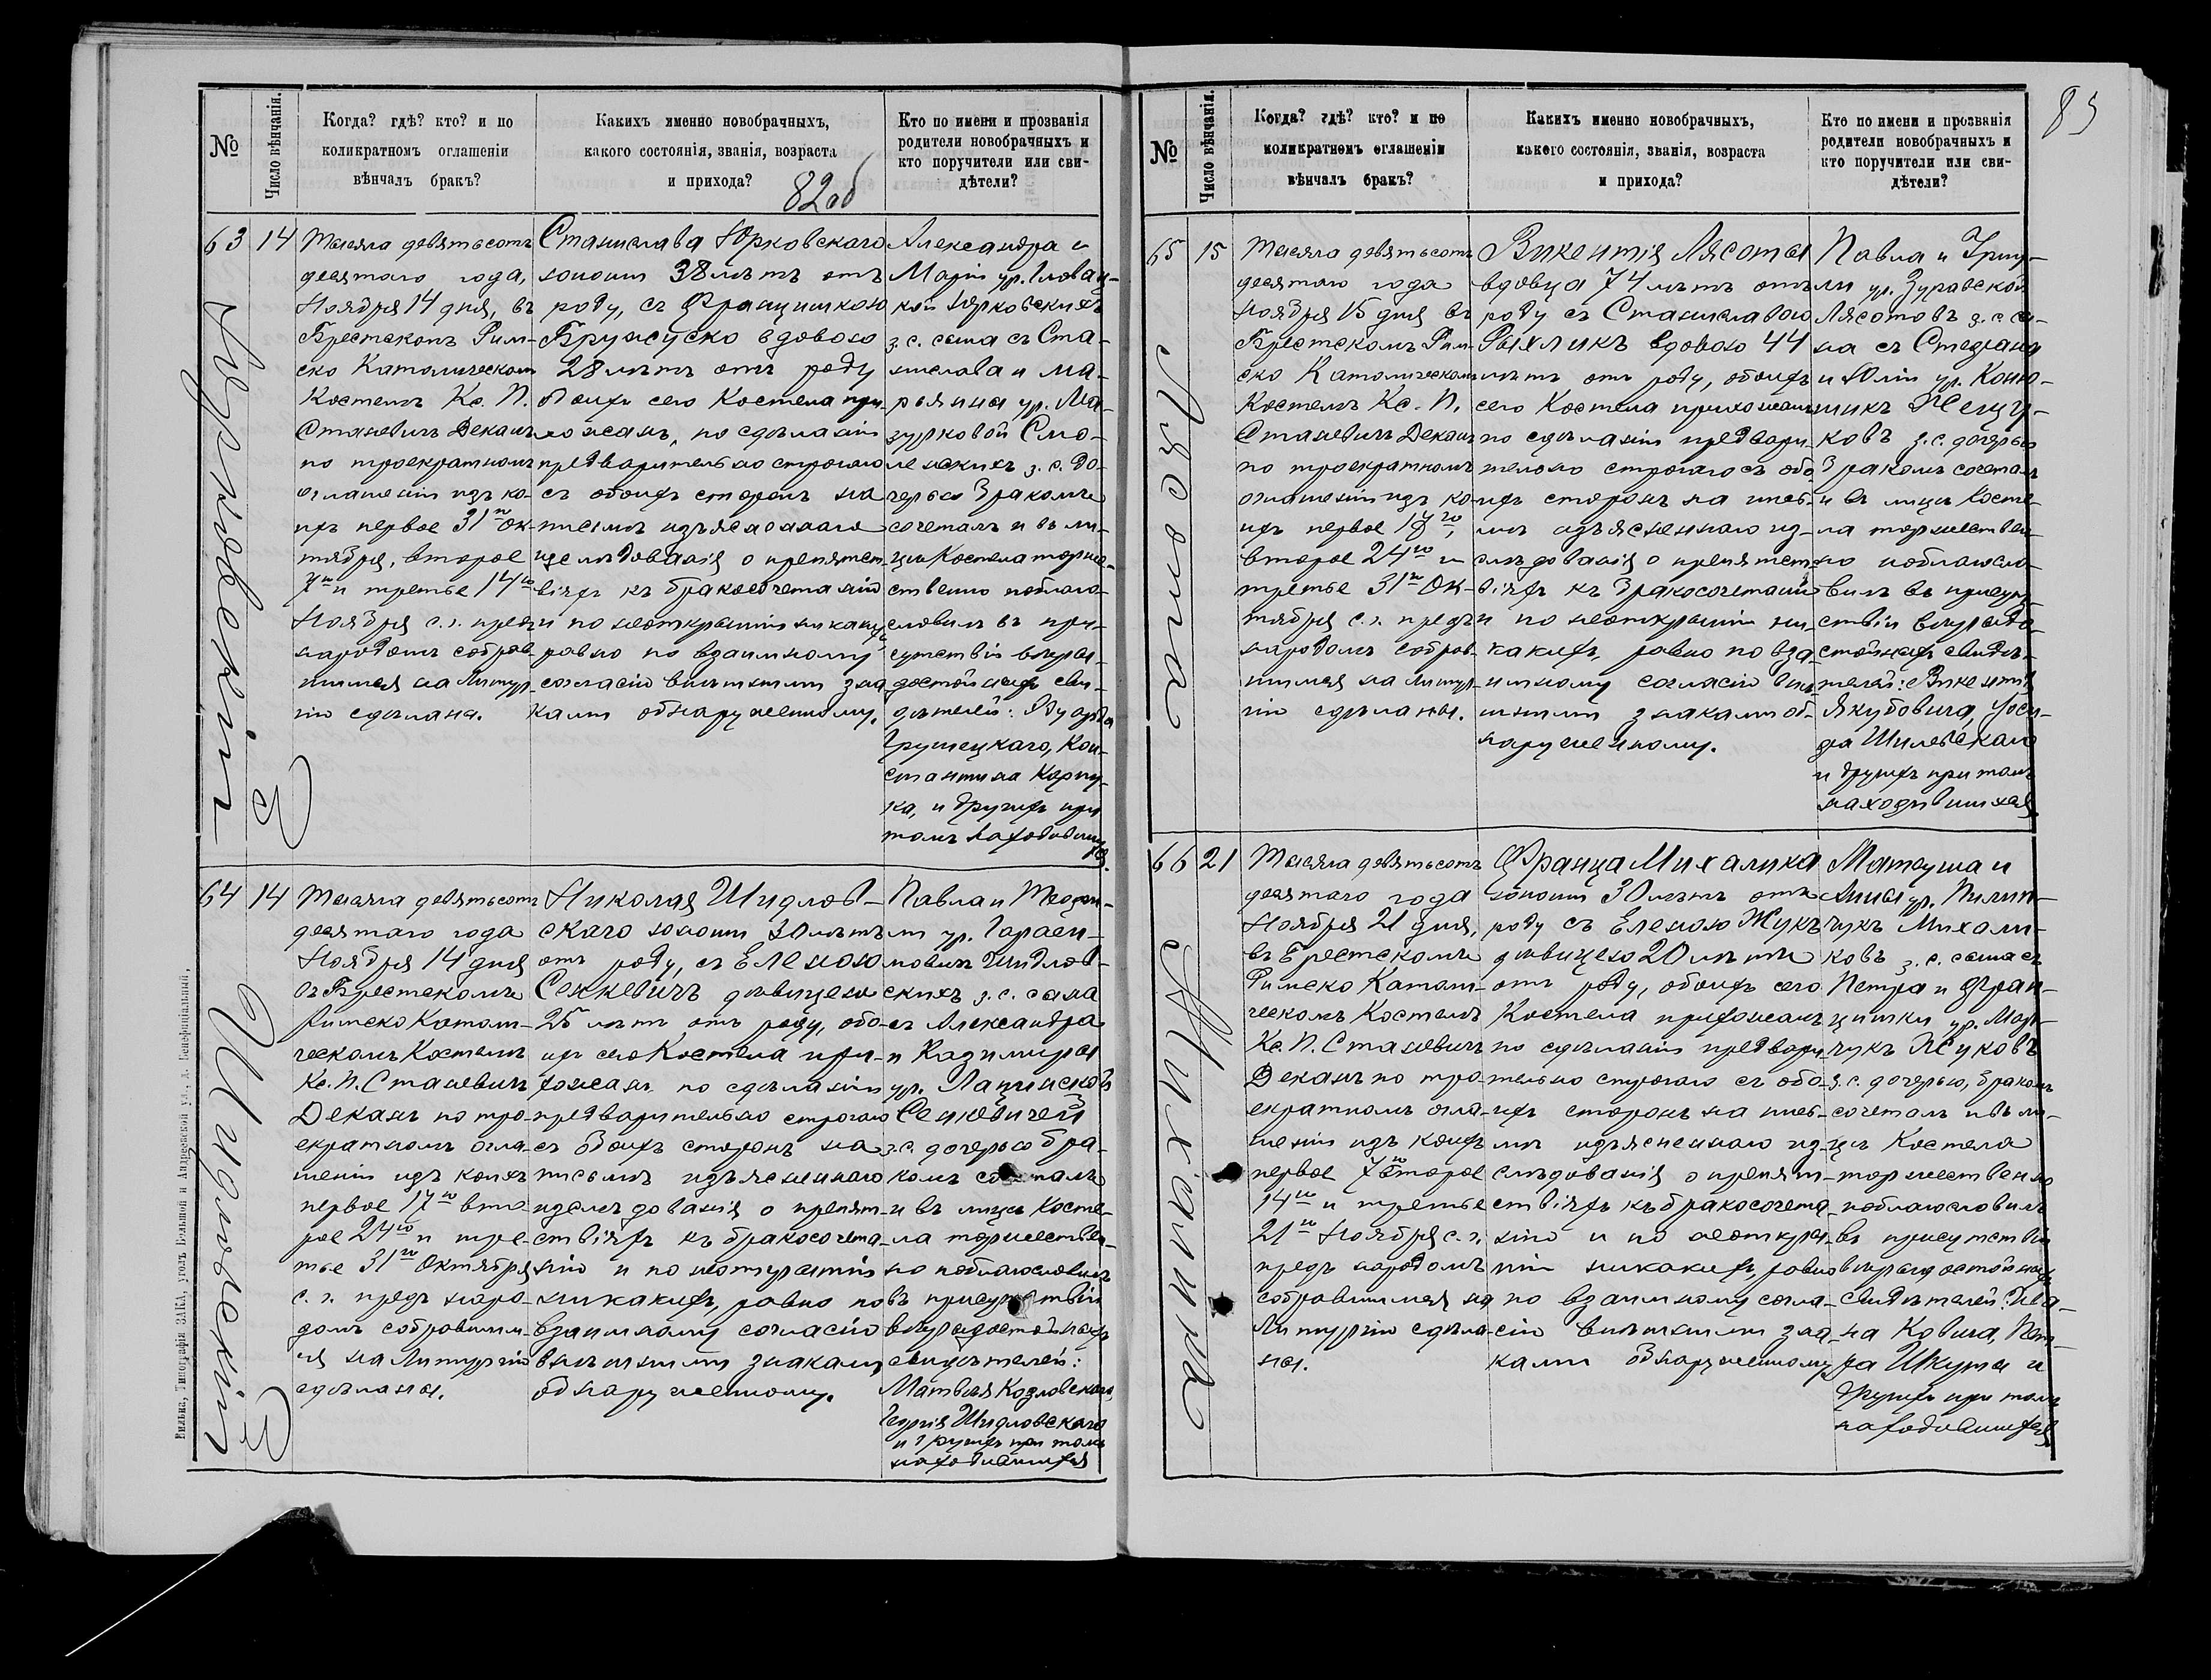 №
Число вѣнчанія.
Когда? гдѣ? кто? и по
коликратномъ оглашеніи
вѣнчалъ бракъ?
Какихъ именно новобрачныхъ,
какого состоянія, званія, возраста
и прихода?
82об
Кто по имени и прозванія
родители новобрачныхъ и
кто поручители или сви-
дѣтели?
63
14
Юрковскій
Тысяча девятьсотъ
десятаго года,
Ноября 14 дня, въ
Брестскомъ Рим-
ско Католическомъ
Костелѣ Кс. П.
Станевичъ Деканъ
по троекратномъ
оглашеніи изъ ко-
ихъ первое 31го Ок-
тября, второе
7го и третье 14го
Ноября с.г. предъ
народомъ собрав-
шимся на Литур-
гію сдѣлана.
Станислава Юрковскаго
юношу 38 лѣтъ отъ
роду, съ Францишкою
вдовою
28 лѣтъ отъ роду
обоихъ сего Костела при-
хожанъ, по сдѣланіи
предварительно строгаго
съ обоихъ сторонъ на
письмѣ изъясненнаго
изслѣдованія о препятст-
віяхъ къ бракосочетанію
и по неоткрытіи никакихъ
равно по взаимному
согласію внѣшними зна
ками обнаруженному.
Александра и
Маріи ур. Глован-
кой Юрковскихъ
з. с. сына съ Ста-
нислава и Ма-
рьянны ур. Ма-
зурковой Смо-
ленскихъ з. с. до-
черью бракомъ
сочеталъ и въ ли-
цѣ Костела торже-
ственно поблаго-
словилъ въ при-
сутствіи вѣры-
достойныхъ сви-
дѣтелей:
Грушецкаго, Кон-
стантина Карпу-
ка, и другихъ при
томъ находившихъ
ся.
64
14
Шидловскій
Тысяча девятьсотъ
десятаго года
Ноября 14 дня
въ Брестскомъ
Римско Католи-
ческомъ Костелѣ
Кс. П. Станевичъ
Деканъ по тро-
екратномъ огла-
шеніи изъ коихъ
первое 17го вто-
рое 24го и тре-
тье 31го Октября
с. г. предъ наро-
домъ собравшим-
ся на Литургію
сдѣланы.
Николая Шидлов-
скаго юношу 30 лѣтъ
отъ роду, съ Еленою
Секкевичъ дѣвицею
25 лѣтъ отъ роду, обо-
ихъ сего Костела при-
хожанъ по сдѣланіи
предварительно строгаго
съ обоихъ сторонъ на
письмѣ изъясненнаго
изслѣдованія о препят-
ствіяхъ къ бракосочета-
нію и по неоткрытіи
никакихъ, равно по
взаимному согласію
внѣшними знаками
обнаруженному.
Павла и Теофи-
ли ур. Гараси-
мовичъ Шидлов-
скихъ з. с. сына
съ Александра
и Казимиры
ур. Лапинской
Сенкевичей
з.с. дочерью бра-
комъ сочеталъ
и въ лицѣ Косте-
ла торжествен-
но поблагословилъ
въ присутствіи
вѣрыдостойныхъ
свидѣтелей:
Матвѣя Козловскаго,
Георгія Шидловскаго
и другихъ при томъ
находившихся
Вильна, Типографія ЗАКА, уголъ Большой и Андреевской ул., д.
83
№
Число вѣнчанія.
Когда? гдѣ? кто? и по
коликратномъ оглашеніи
вѣнчалъ бракъ?
Какихъ именно новобрачныхъ,
какого состоянія, званія, возраста
и прихода?
Кто по имени и прозванія
родители новобрачныхъ и
кто поручители или сви-
дѣтели?
65
15
Лясота
Тысяча девятьсотъ
десятаго года
Ноября 15 дня въ
Брестскомъ Рим-
ско Католическомъ
Костелѣ Кс. П.
Станевичъ Деканъ
по троекратномъ
оглашеніи изъ ко-
ихъ первое 17го,
второе 24го и
третье 31го Ок-
тября с. г. предъ
народомъ собрав-
шимся на Литур-
гію сдѣланы.
Викентія Лясоты
вдовца 74 лѣтъ отъ
роду съ Станиславою
Рыхликъ вдовою 44
лѣтъ отъ роду, обоихъ
сего Костела прихожанъ
по сдѣланіи предвари-
тельно строгаго съ обо-
ихъ сторонъ на пись-
мѣ изъясненнаго из-
слѣдованія о препятст-
віяхъ къ бракосочетанію
и по неоткрытіи ни-
какихъ, равно по вза-
имному согласію внѣ-
шними знаками об-
наруженному.
Павла и Уршу-
ли ур. Зуравской
Лясотовъ з. с. сы-
на съ Стефана
и Юліи ур. Коню-
шикъ
ковъ з.с. дочерью
бракомъ сочеталъ
и въ лицѣ Косте-
ла торжествен-
но поблагосло-
вилъ въ присут-
ствіи вѣрыдо-
стойныхъ свидѣ-
телей: Викентія
Якубовича, Іоси-
фа Шилевскаго
и другихъ при томъ
находившихся
66
21
Михаликъ
Тысяча девятьсотъ
десятаго года
Ноября 21 дня,
въ Брестскомъ
Римско Католи-
ческомъ Костелѣ
Кс. П. Станевичъ
Деканъ по тро-
екратномъ огла-
шеніи изъ коихъ
первое 7го второе
14го и третье
21го Ноября с. г.
предъ народомъ
собравшимся на
Литургію сдѣла-
ны.
Франца Михалика
юношу 30 лѣтъ отъ
роду съ Еленою Жукъ
дѣвицею 20 лѣтъ
отъ роду, обоихъ сего
Костела прихожанъ
по сдѣланіи предвари-
тельно строгаго съ обо-
ихъ сторонъ на пись-
мѣ изъясненнаго из-
слѣдованія о препят-
ствіяхъ къ бракосочета-
нію и по неоткры-
тіи никакихъ, равно
по взаимному согла-
сію внѣшними зна-
ками обнаруженному
Матеуша и
Анны ур. Пилип-
чукъ Михали-
ковъ з. с. сына съ
Петра и Фран-
цишки ур. Мар-
чукъ Жуковъ
з.с. дочерью, бракомъ
сочеталъ и въ ли-
цѣ Костела
торжественно
поблагословилъ
въ присутствіи
вѣрыдостойныхъ
свидѣтелей: Ива-
на Ковича, Пет-
ра Шкуты и
другихъ при томъ
находившихся